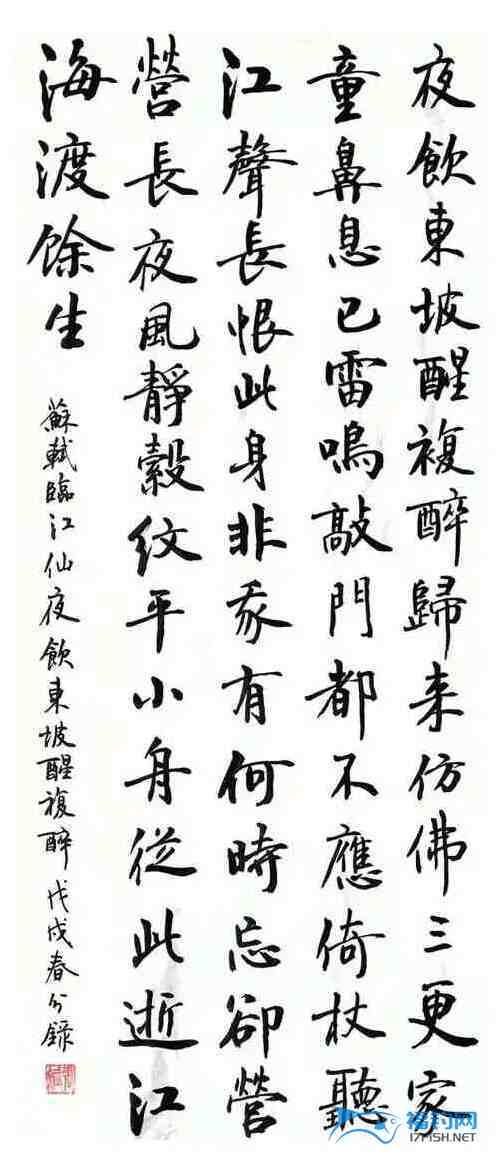 夜飲東坡醒複醉歸来仿佛三更家
童鼻息已雷鳴敲門都不應倚杖聽
江聲長恨此身非我有何時忘卻營
營長夜風靜縠纹平小舟從此逝江
海渡餘生
蘇軾臨江仙夜飲東坡醒複醉 戊戌春分錄
福钓网
17FISH.NET